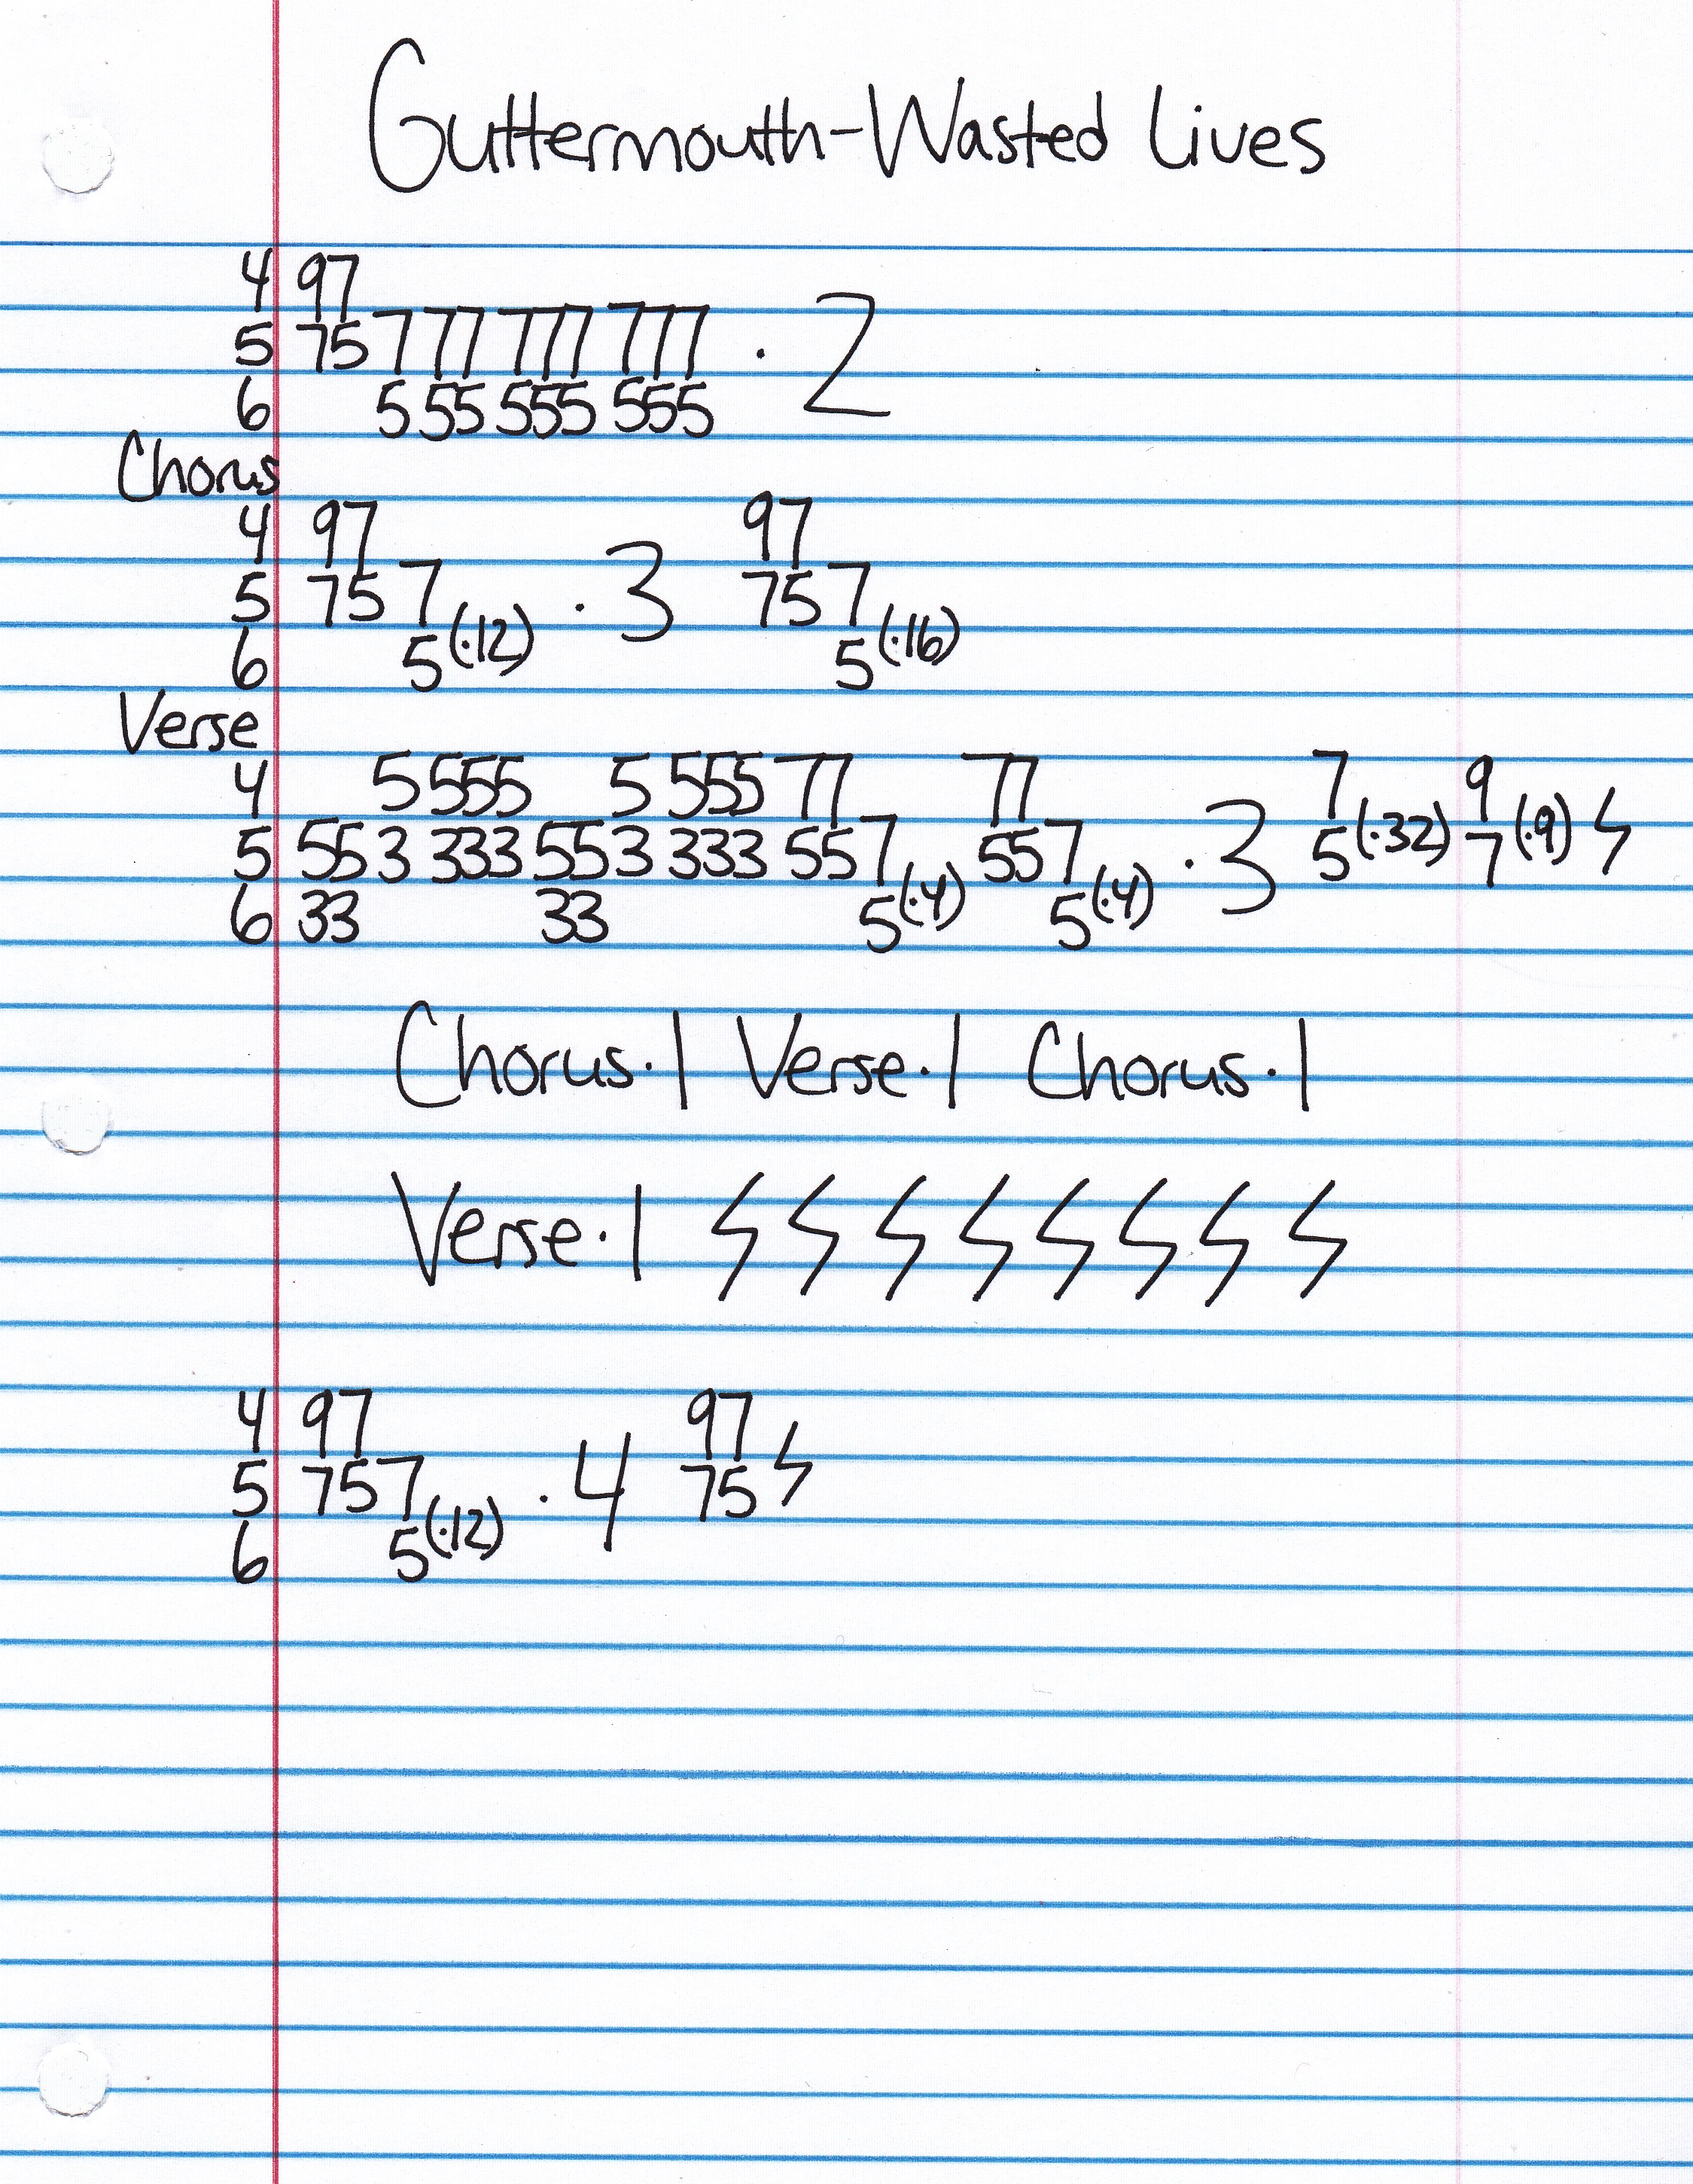 Guttermouth-Wasted Lives
4 97
5 75 7 77 777 777 · 2
6 5 55 555 555
Chorus
4 97 97
5 75 7 · 3 75 7
6 5(·12) 5(·16)
Verse
4 5 555 5 555 77 77 7 9
5 55 3 333 55 3 333 55 7 55 7 · 3 5(·32) 7(·9) ϟ
6 33 33 5(·4) 5(·4)
Chorus·1 Verse·1 Chorus·1
Verse·1 ϟ ϟ ϟ ϟ ϟ ϟ ϟ ϟ
4 97 97
5 75 7 · 4 75 ϟ
6 5(·12)